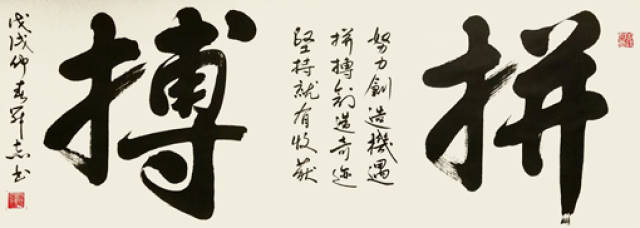 拼
努力創造機遇
拼搏創造奇迹
堅持就有收获
搏
戊戌仲春军志书